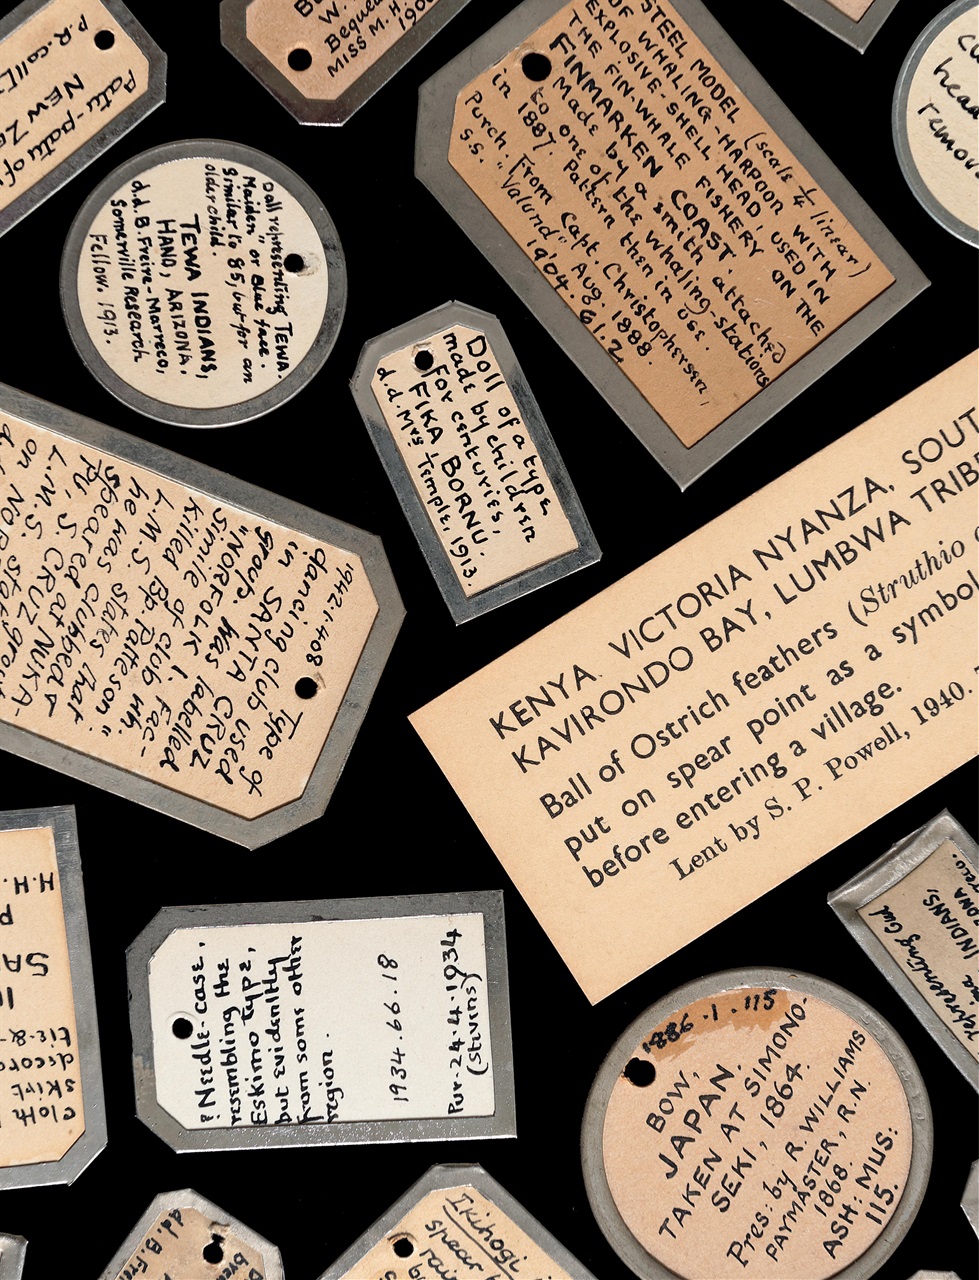 P.R. call
NEW Z
Patu-patu of
W.
Beque
MISS M. H.
190
STEEL MODEL (scale ¼ linear)
OF WHALING-HARPOON WITH
EXPLOSIVE-SHELL HEAD, USED IN
THE FIN-WHALE FISHERY ON THE
FINMARKEN COAST.
Made by a smith attached
to one of the whaling-stations
in 1887. Pattern then in use.
Purch. from Capt. Christophersen,
S.S. "Valund" Aug. 1888.
1904.61.2.
head
remov
Doll representing TEWA
Maiden, or Blue face.
Similar to 85, but for an
older child.
TEWA INDIANS,
HANO, ARIZONA.
d.d. B. Freire-Marreco,
Somerville Research
Fellow. 1913.
Doll of a type
made by children
for centuries,
FIKA, BORNU.
d.d. Mrs Temple, 1913.
KENYA. VICTORIA NYANZA, SOUT
KAVIRONDO BAY, LUMBWA TRIBE
Ball of Ostrich feathers (Struthio
put on spear point as a symbo
before entering a village.
Lent by S. P. Powell, 1940.
1942.1.408 Type of
dancing club used
in SANTA CRUZ
group. Was labelled
"NORFOLK I. Fac-
simile of club wh.
killed Bp. Patteson."
L.M.S. states that
he was clubbed &
speared at NUKA-
PU, S. CRUZ
L.M.S.
on NO.
H.H.
P
SA
II
tie-&-
discor
skirt
cloth
?Needle-case,
resembling the
Eskimo type,
but evidently
from some other
region.
1934.66.18
Pur. 24.4.1934
(Stevens)
representing Owl
INDIANS,
1886.1.115
BOW,
JAPAN.
TAKEN AT SIMONO-
SEKI, 1864.
Pres: by R. WILLIAMS
PAYMASTER, R.N.
1868.
ASH: MUS:
115.
d.d. B. Frei
Ikihogi
spear